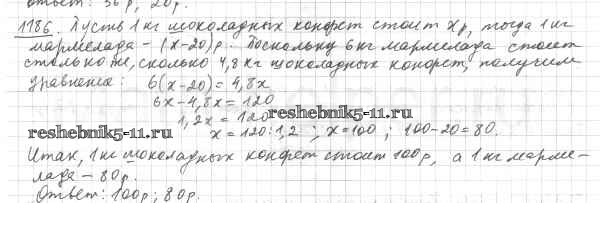 ответ: 36 р, 20 р.
1186. Пусть 1 кг шоколадных конфет стоит х р, тогда 1 кг
мармелада - (х-20) р. Поскольку 6 кг мармелада стоит
столько же, сколько 4,8 кг шоколадных конфет, получим
уравнение: 6(х-20)=4,8х
6х-4,8х=120
1,2х=120
reshebnik5-11.ru
reshebnik5-11.ru
х=120:1,2 ; х=100 ; 100-20=80.
Итак, 1 кг шоколадных конфет стоит 100 р, а 1 кг марме-
лада - 80 р.
Ответ: 100 р; 80 р.